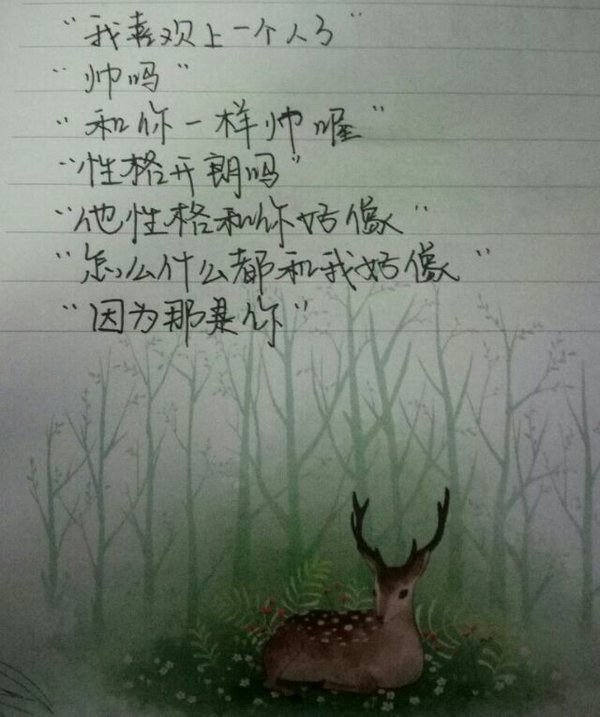 “我喜欢上一个人了”
“帅吗”
“和你一样帅喔”
“性格开朗吗”
“他性格和你好像”
“怎么什么都和我好像”
“因为那是你”